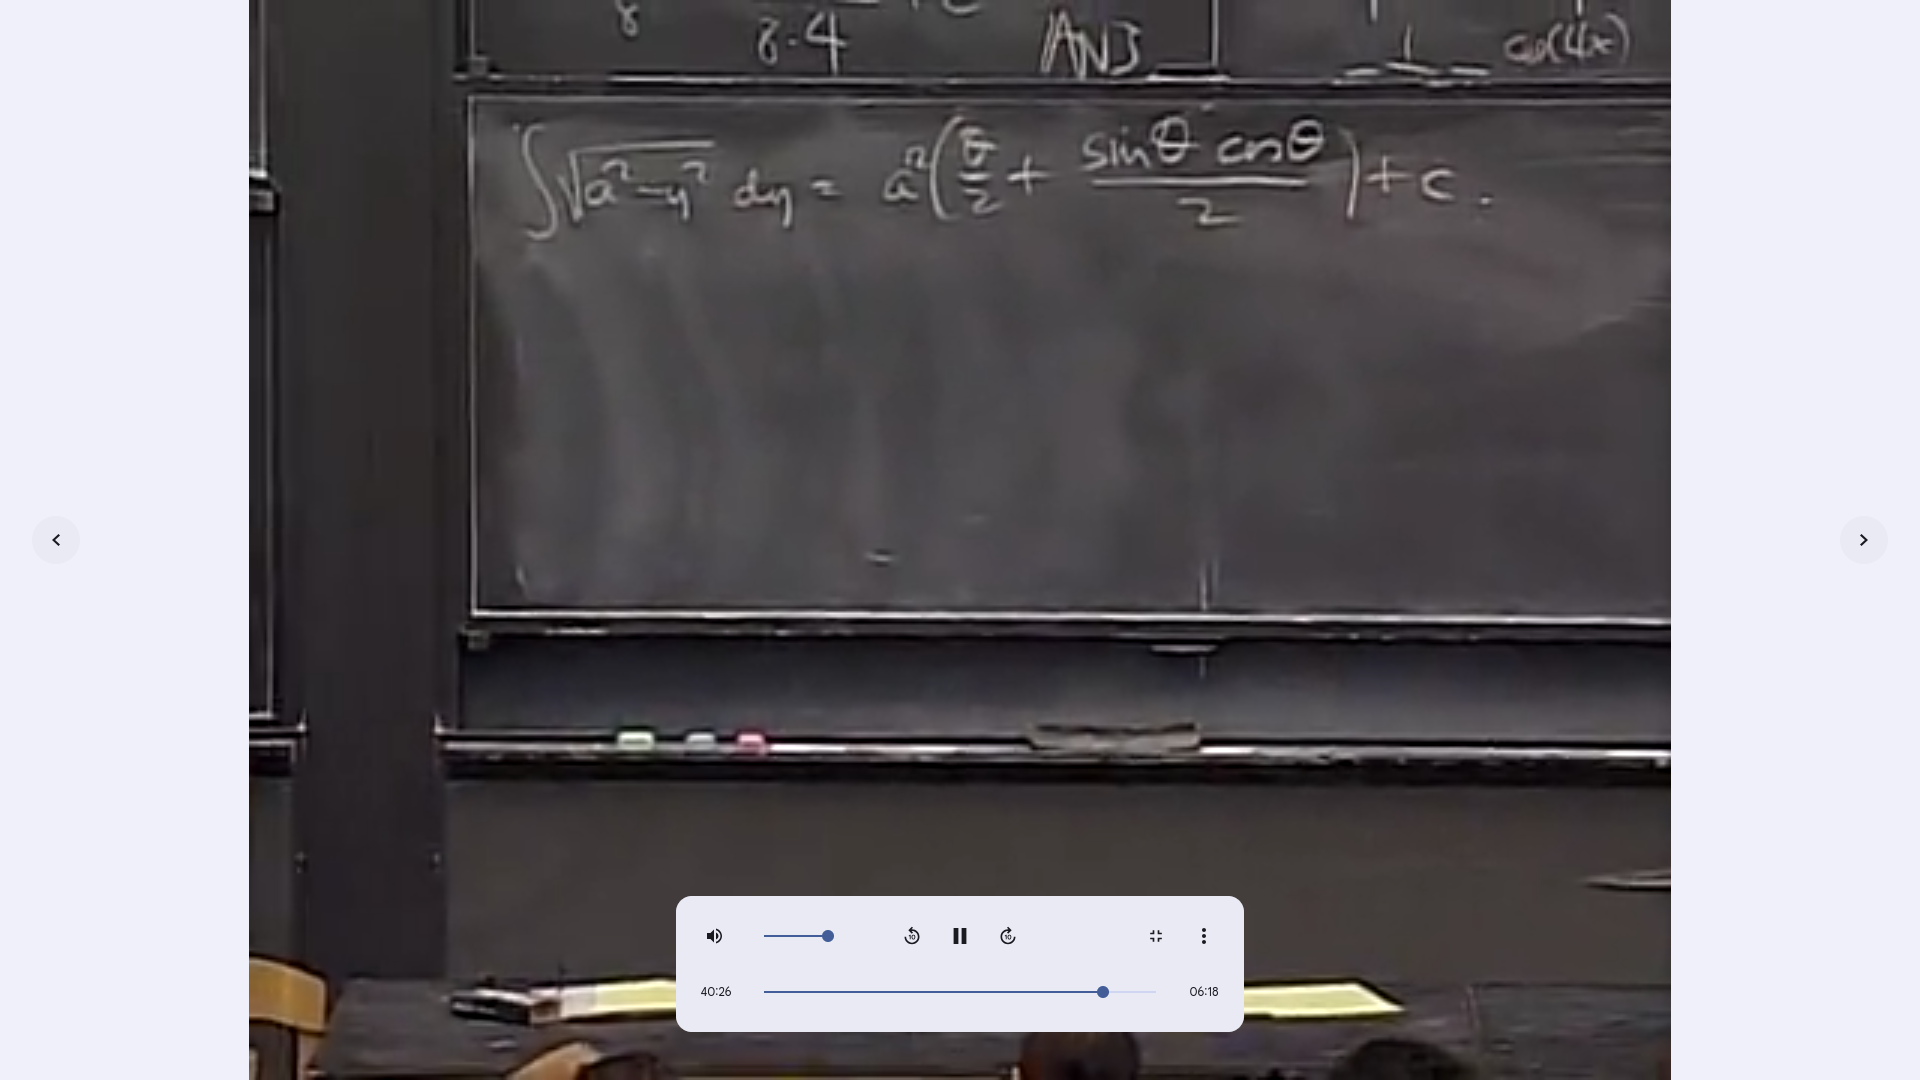 8 8·4 + c ANS
1 cos(4x)
∫√(a²-y²) dy = a²(θ/2 + sinθ cosθ/2) + c.
10 10
40:26 06:18